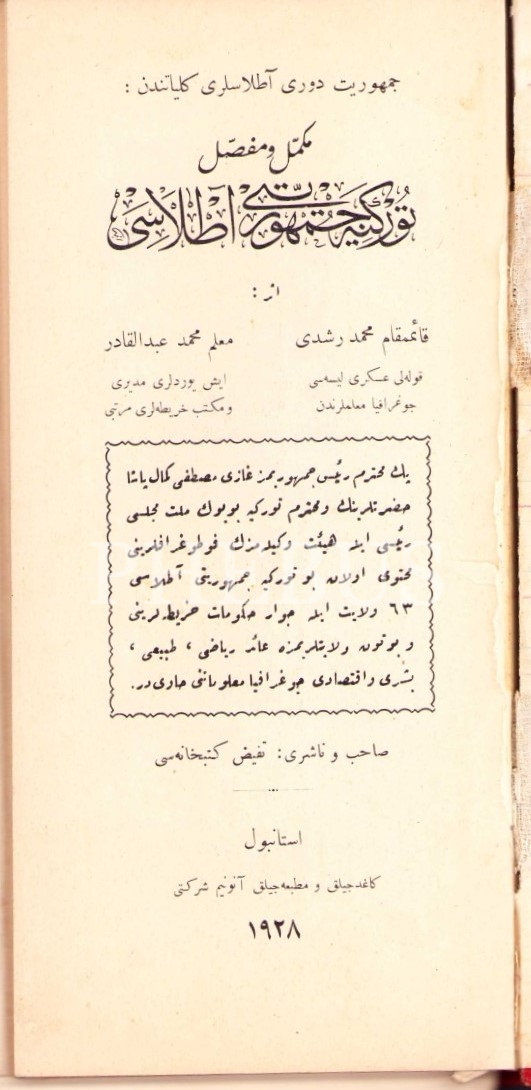 جمهوریت دوری آطلاسلری کلیاتندن :
مکمّل و مفصّل
تُورکیَه جُمْهُورِیَّتی اَطْلاَسِی
اثر :
قائممقام محمد رشدی
معلم محمد عبدالقادر
قوله‌لی عسکری لیسه‌سی
ایش یوردلری مدیری
جوغرافیا معلملرندن
و مکتب خریطه‌لری مرتبی
پك محترم رئیس جمهوریمز غازی مصطفی کمال پاشا
حضرتلرینك و محترم تورکیه بویوك ملت مجلسی
رئیسی ایله هیئت وکیله‌مزك فوطوغرافلرینی
محتوی اولان بو تورکیه جمهوریتی آطلاسی
٦٣ ولایت ایله جوار حکومات خریطه‌لرینی
و بوتون ولایتلریمزه عائد ریاضی ، طبیعی ،
بشری و اقتصادی جوغرافیا معلوماتنی حاوی در.
صاحب و ناشری: تفیض کتبخانه‌سی
استانبول
کاغدجیلق و مطبعه‌جیلق آنونیم شرکتی
١٩٢٨